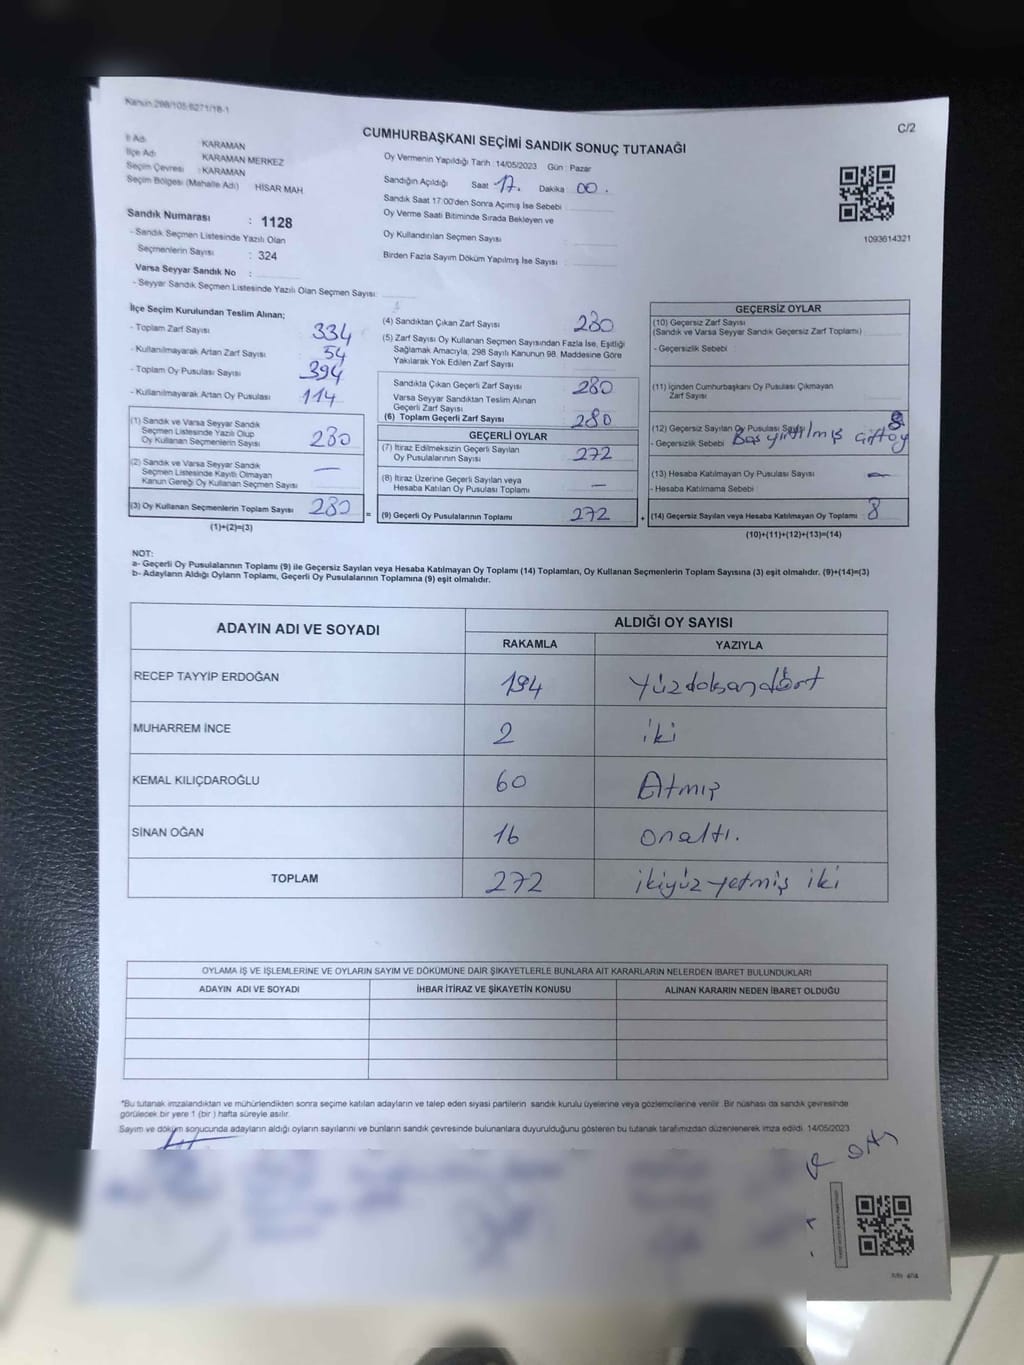 Kanun:298/105-6271/18-1
C/2
CUMHURBAŞKANI SEÇİMİ SANDIK SONUÇ TUTANAĞI
İl Adı : KARAMAN
İlçe Adı : KARAMAN MERKEZ
Seçim Çevresi : KARAMAN
Seçim Bölgesi (Mahalle Adı) HİSAR MAH
Sandık Numarası : 1128
- Sandık Seçmen Listesinde Yazılı Olan
Seçmenlerin Sayısı : 324
Varsa Seyyar Sandık No :
- Seyyar Sandık Seçmen Listesinde Yazılı Olan Seçmen Sayısı:
Oy Vermenin Yapıldığı Tarih :14/05/2023 Gün : Pazar
Sandığın Açıldığı Saat 17. Dakika 00.
Sandık Saat 17:00'den Sonra Açımış İse Sebebi
Oy Verme Saati Bitiminde Sırada Bekleyen ve
Oy Kullandırılan Seçmen Sayısı :
Birden Fazla Sayım Döküm Yapılmış İse Sayısı :
1093614321
İlçe Seçim Kurulundan Teslim Alınan;
- Toplam Zarf Sayısı 334
- Kullanılmayarak Artan Zarf Sayısı 54
- Toplam Oy Pusulası Sayısı 394
- Kullanılmayarak Artan Oy Pusulası 114
(1) Sandık ve Varsa Seyyar Sandık
Seçmen Listesinde Yazılı Olup
Oy Kullanan Seçmenlerin Sayısı 280
(2) Sandık ve Varsa Seyyar Sandık
Seçmen Listesinde Kayıtlı Olmayan
Kanun Gereği Oy Kullanan Seçmen Sayısı —
(3) Oy Kullanan Seçmenlerin Toplam Sayısı 280 =
(1)+(2)=(3)
(4) Sandıktan Çıkan Zarf Sayısı 280
(5) Zarf Sayısı Oy Kullanan Seçmen Sayısından Fazla İse, Eşitliği
Sağlamak Amacıyla, 298 Sayılı Kanunun 98. Maddesine Göre
Yakılarak Yok Edilen Zarf Sayısı
Sandıkta Çıkan Geçerli Zarf Sayısı 280
Varsa Seyyar Sandıktan Teslim Alınan
Geçerli Zarf Sayısı
(6) Toplam Geçerli Zarf Sayısı 280
GEÇERLİ OYLAR
(7) İtiraz Edilmeksizin Geçerli Sayılan
Oy Pusulalarının Sayısı 272
(8) İtiraz Üzerine Geçerli Sayılan veya
Hesaba Katılan Oy Pusulası Toplamı —
(9) Geçerli Oy Pusulalarının Toplamı 272 +
GEÇERSİZ OYLAR
(10) Geçersiz Zarf Sayısı
(Sandık ve Varsa Seyyar Sandık Geçersiz Zarf Toplamı)
- Geçersizlik Sebebi :
(11) İçinden Cumhurbaşkanı Oy Pusulası Çıkmayan
Zarf Sayısı
(12) Geçersiz Sayılan Oy Pusulası Sayısı 8
- Geçersizlik Sebebi Boş yırtılmış çift oy
(13) Hesaba Katılmayan Oy Pusulası Sayısı —
- Hesaba Katılmama Sebebi
(14) Geçersiz Sayılan veya Hesaba Katılmayan Oy Toplamı 8
(10)+(11)+(12)+(13)=(14)
NOT:
a- Geçerli Oy Pusulalarının Toplamı (9) ile Geçersiz Sayılan veya Hesaba Katılmayan Oy Toplamı (14) Toplamları, Oy Kullanan Seçmenlerin Toplam Sayısına (3) eşit olmalıdır. (9)+(14)=(3)
b- Adayların Aldığı Oyların Toplamı, Geçerli Oy Pusulalarının Toplamına (9) eşit olmalıdır.
ADAYIN ADI VE SOYADI ALDIĞI OY SAYISI
RAKAMLA YAZIYLA
RECEP TAYYİP ERDOĞAN 194 Yüzdoksandört
MUHARREM İNCE 2 iki
KEMAL KILIÇDAROĞLU 60 Atmış
SİNAN OĞAN 16 onaltı.
TOPLAM 272 ikiyüz yetmiş iki
OYLAMA İŞ VE İŞLEMLERİNE VE OYLARIN SAYIM VE DÖKÜMÜNE DAİR ŞİKAYETLERLE BUNLARA AİT KARARLARIN NELERDEN İBARET BULUNDUKLARI
ADAYIN ADI VE SOYADI İHBAR İTİRAZ VE ŞİKAYETİN KONUSU ALINAN KARARIN NEDEN İBARET OLDUĞU
*Bu tutanak imzalandıktan ve mühürlendikten sonra seçime katılan adayların ve talep eden siyasi partilerin sandık kurulu üyelerine veya gözlemcilerine verilir. Bir nüshası da sandık çevresinde
görülecek bir yere 1 (bir) hafta süreyle asılır.
Sayım ve döküm sonucunda adayların aldığı oyların sayılarını ve bunların sandık çevresinde bulunanlara duyurulduğunu gösteren bu tutanak tarafımızdan düzenlenerek imza edildi. 14/05/2023